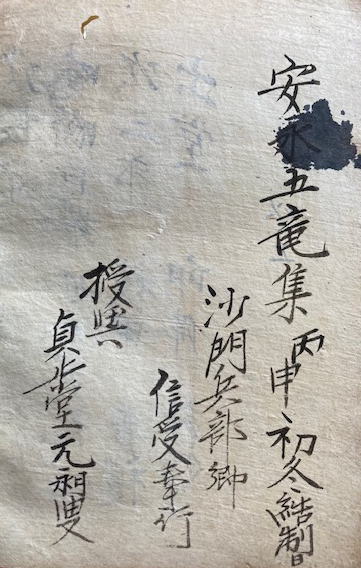 安永五竜集丙申初冬結制日
沙門兵部卿
信受奉行
授與
貞
堂元
叟